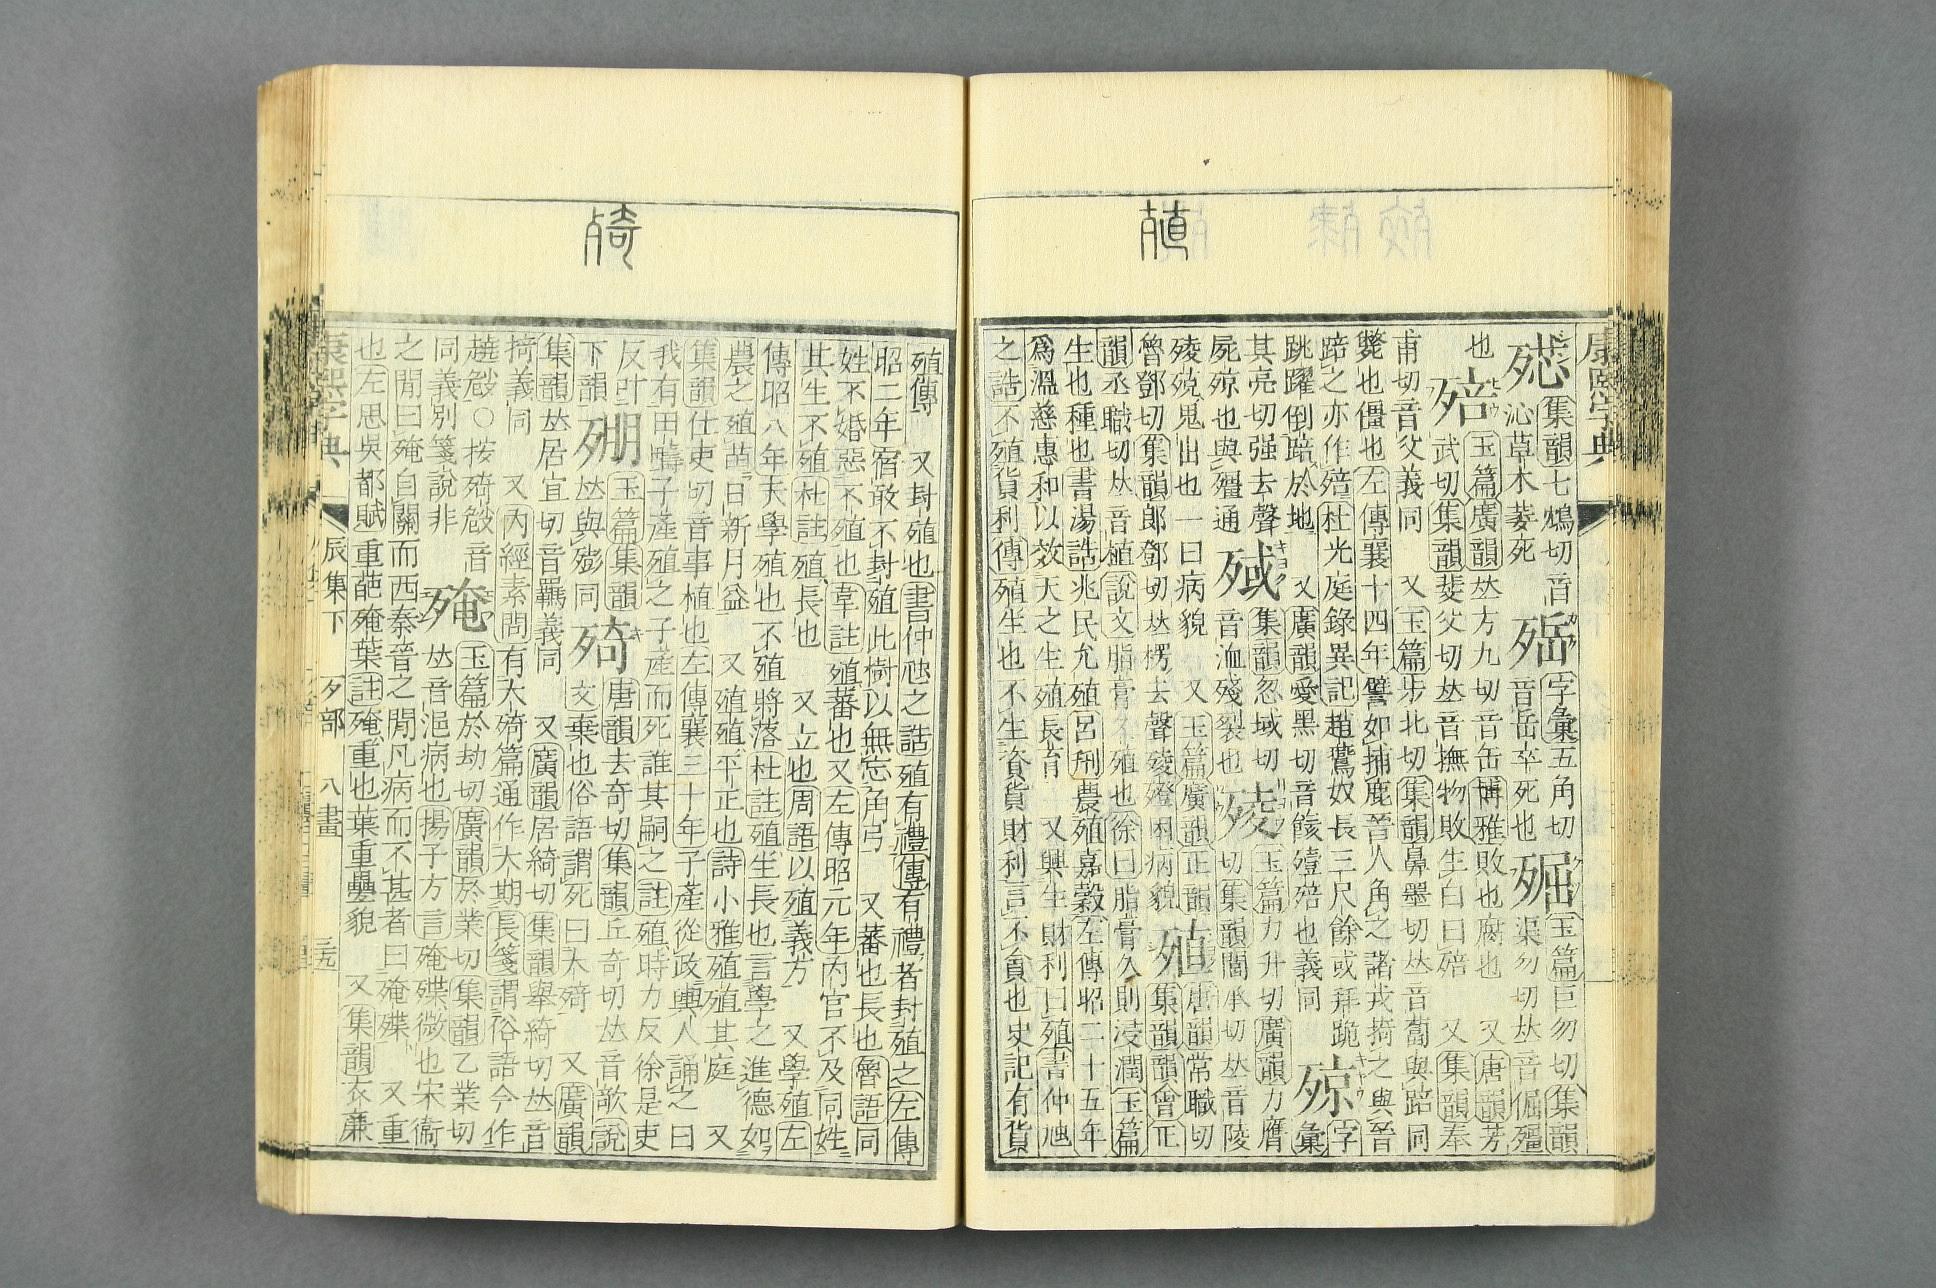 康熙字典
集韻七鴆切音
沁草木萎死
字彙五角切
音岳卒死也
殈
玉篇巨勿切集韻
渠勿切𠀤音倔殭
也
殕
玉篇廣韻𠀤方九切音缶博雅敗也腐也 又唐韻芳
武切集韻斐父切𠀤音撫物敗生白曰殕 又集韻奉
甫切音父義同 又玉篇步北切集韻鼻墨切𠀤音蔔與踣同
斃也僵也左傳襄十四年譬如捕鹿晉人角之諸戎掎之與晉
踣之亦作殕杜光庭錄異記趙鷟奴長三尺餘或拜跪
跳躍倒踣於地 又廣韻愛黑切音餩殪殕也義同
殑
字彙
其亮切强去聲
屍殑也與殭通
㱸
集韻忽域切
音洫殘裂也
㱥
玉篇力升切廣韻力膺
切集韻閭承切𠀤音陵
㱥殑鬼出也一曰病貌 又玉篇廣韻正韻
魯鄧切集韻郎鄧切𠀤楞去聲㱥殑困病貌
殖
唐韻常職切
集韻韻會正
韻丞職切𠀤音植說文脂膏久殖也徐曰脂膏久則浸潤玉篇
生也種也書湯誥兆民允殖呂刑農殖嘉穀左傳昭二十五年
爲溫慈惠和以效天之生殖長育 又興生財利曰殖書仲虺
之誥不殖貨利傳殖生也不生資貨財利言不貪也史記有貨
殖傳 又封殖也書仲虺之誥殖有禮傳有禮者封殖之左傳
昭二年宿敢不封殖此樹以無忘角弓 又蕃也長也魯語同
姓不婚惡不殖也韋註殖蕃也又左傳昭元年內官不及同姓
其生不殖杜註殖長也 又立也周語以殖義方 又學殖左
傳昭八年夫學殖也不殖將落杜註殖生長也言學之進德如
農之殖苗日新月益 又殖殖平正也詩小雅殖殖其庭 又
集韻仕吏切音事植也左傳襄三十年子產從政輿人誦之曰
我有田疇子產殖之子產而死誰其嗣之註殖時力反徐是吏
反叶
下韻
㱶
玉篇集韻
𠀤與㱶同
㱦
唐韻去奇切集韻丘奇切𠀤音欹說
文棄也俗語謂死曰大㱦 又廣韻
集韻𠀤居宜切音羈義同 又廣韻居綺切集韻舉綺切𠀤音
掎義同 又內經素問有大㱦篇通作大期長箋謂俗語今作
音
同義別箋說非
殗
玉篇於劫切廣韻於業切集韻乙業切
𠀤音浥病也揚子方言殗殜微也宋衞
之閒曰殗自關而西秦晉之閒凡病而不甚者曰殗殜 又重
也左思吳都賦重葩殗葉註殗重也葉重疊貌 又集韻衣廉
康熙字典
辰集下
歹部
八畫
三五